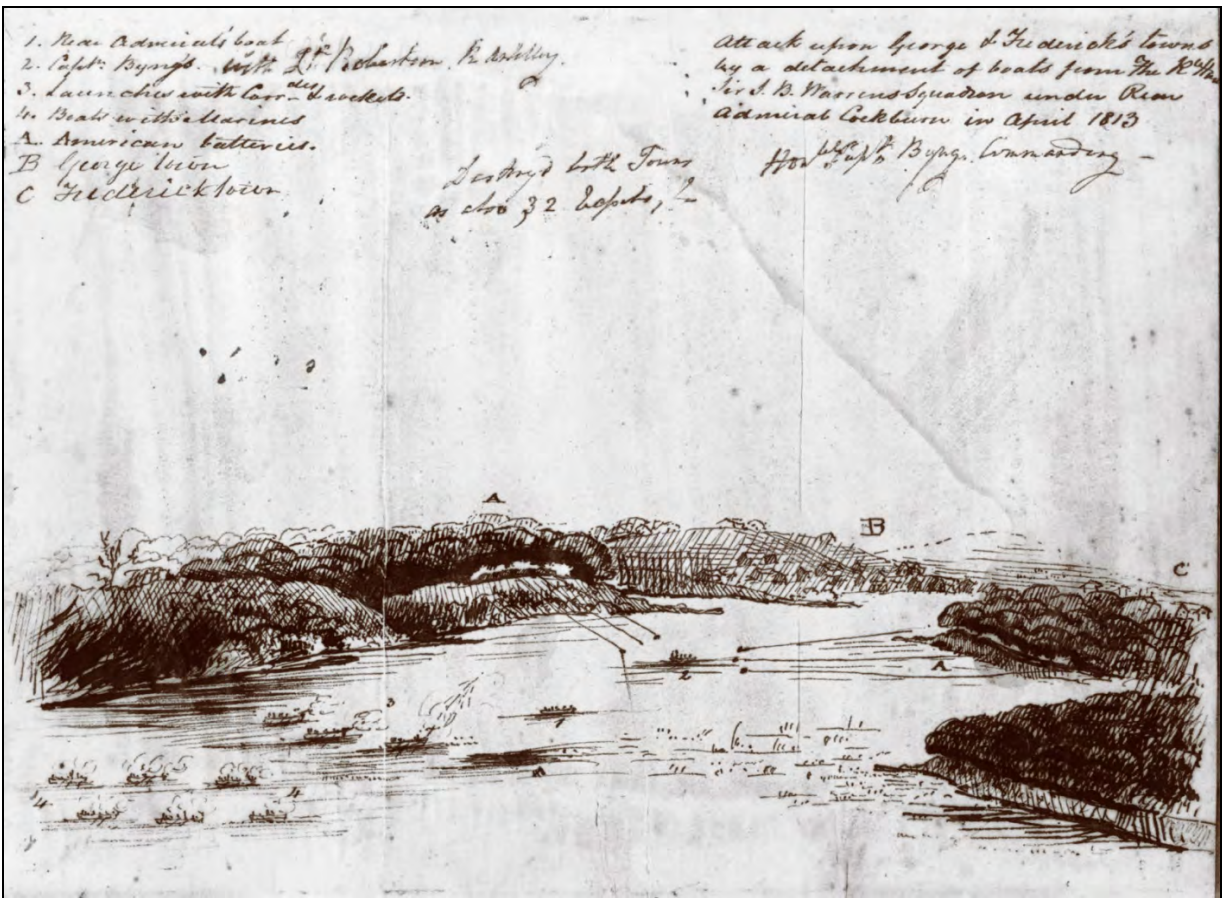 1. Rear Admiral's boat
2. Capt. Byng's. with Lt. Robertson R. Artillery
3. Launches with Carrades & rockets.
4. Boats with Marines
A. American batteries.
B George town
C Fredericktown
Destroy'd both Towns
as also 32 
Attack upon George & Frederick's towns
by a detachment of boats from The
Sir J. B. Warrens Squadron under Rear
Admiral Cockburn in April 1813
Capt. Byng. Commanding
A
B
C
A
2
3
1
4
4